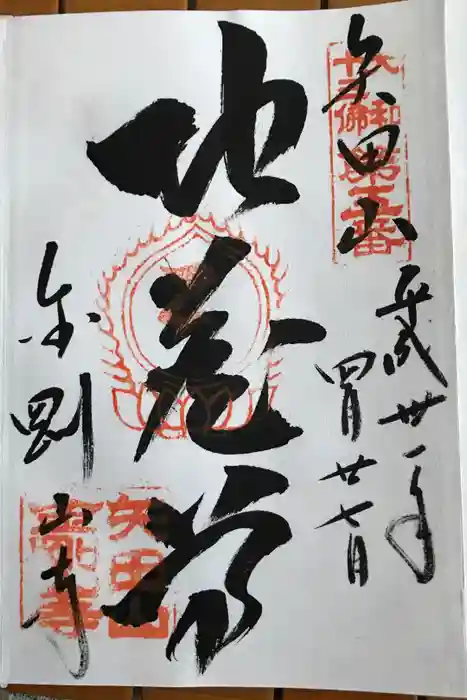 大和
十三佛
第五番
矢田山
平成卅一年
四月廿七日
地蔵尊
金剛山寺
矢田山